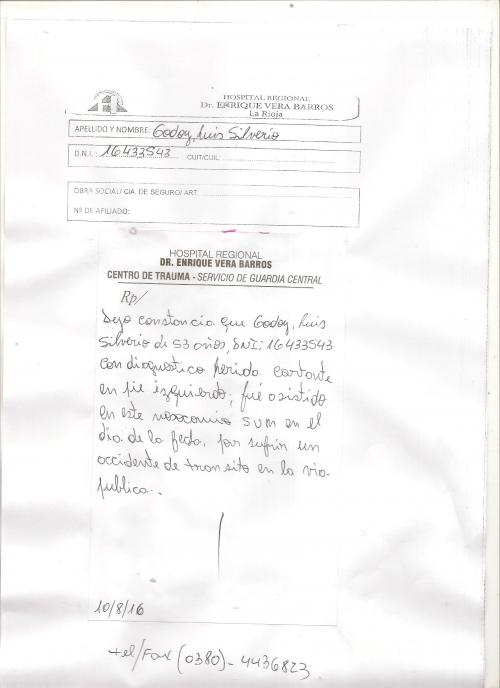 HOSPITAL REGIONAL
Dr. ENRIQUE VERA BARROS
La Rioja
APELLIDO Y NOMBRE: Godoy, Luis Silverio
D.N.I.: 16433543 CUIT/CUIL:
OBRA SOCIAL/ CIA. DE SEGURO/ ART
Nº DE AFILIADO:
HOSPITAL REGIONAL
DR. ENRIQUE VERA BARROS
CENTRO DE TRAUMA - SERVICIO DE GUARDIA CENTRAL
Rp/
Dejo constancia que Godoy, Luis
Silverio de 53 años, DNI: 16433543
con diagnostico herida cortante
en pie izquierdo; fué asistido
en este nosocomio SUM en el
día de la fecha, por sufrir un
accidente de transito en la via
publica..
10/8/16
tel/Fax (0380)-4436823